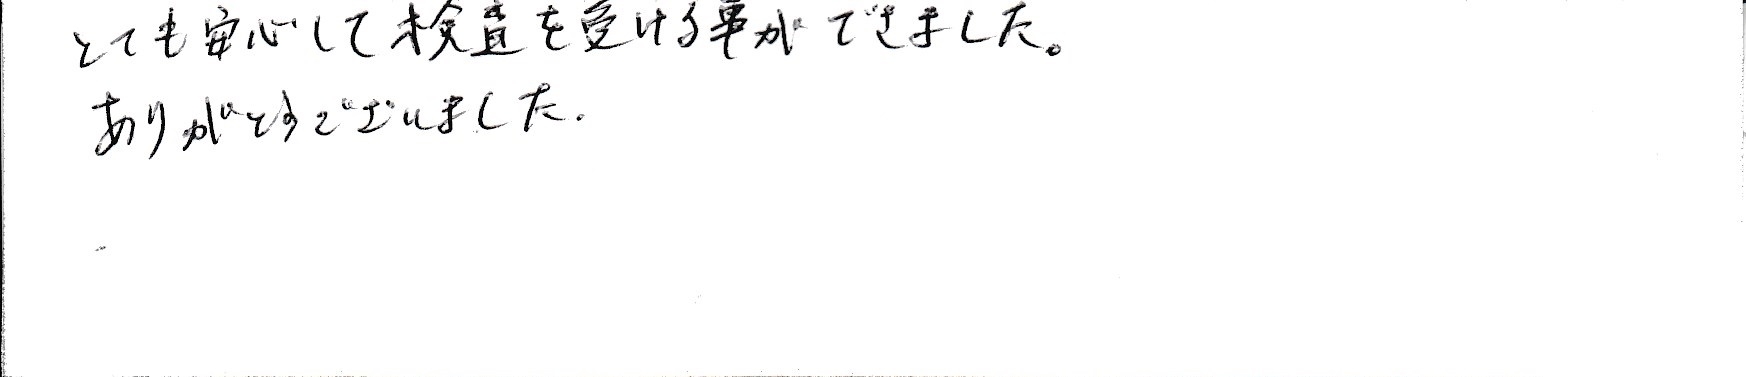 とても安心して検査を受ける事ができました。
ありがとうございました.